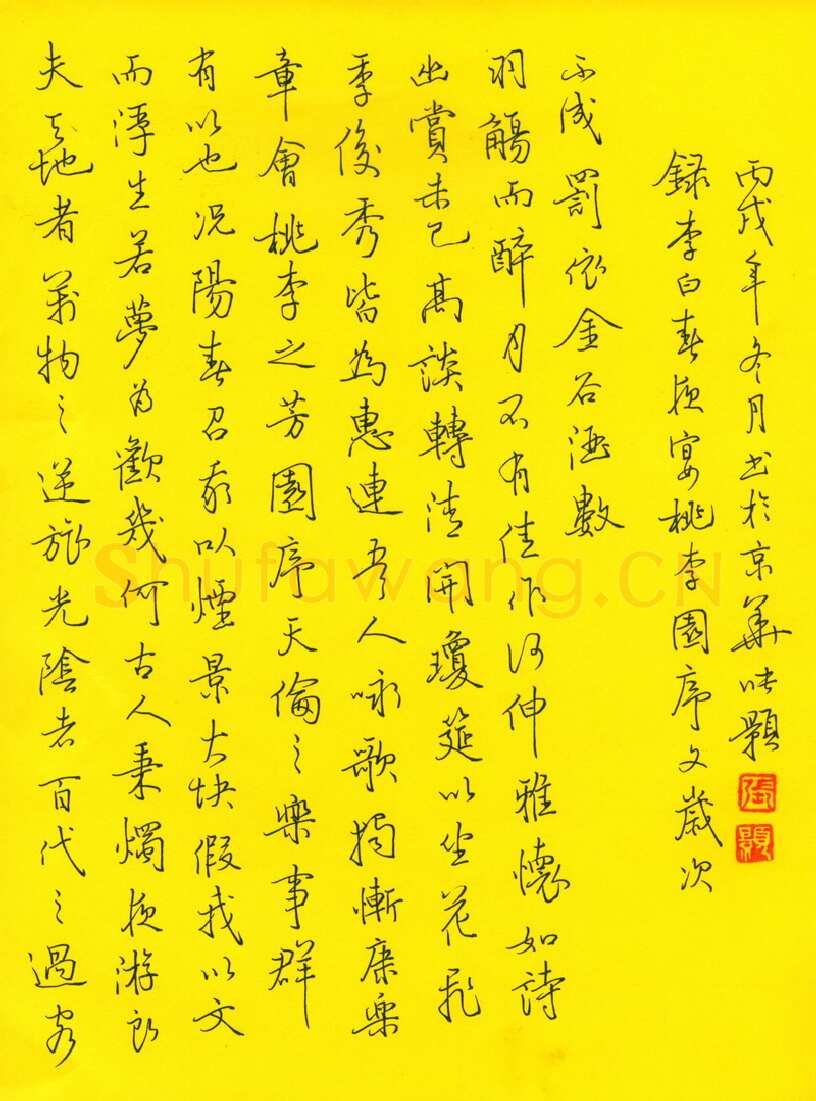 夫天地者萬物之逆旅光陰者百代之過客
而浮生若夢為歡幾何古人秉燭夜游良
有以也况陽春召我以煙景大块假我以文
章會桃李之芳園序天倫之樂事群
季俊秀皆為惠連吾人詠歌獨慚康樂
幽賞未已高談轉清開瓊筵以坐花飛
羽觴而醉月不有佳作何伸雅懷如詩
不成罰依金谷酒數
録李白春夜宴桃李園序文歲次
丙戌年冬月書於京華張
張
Shufawang.CN